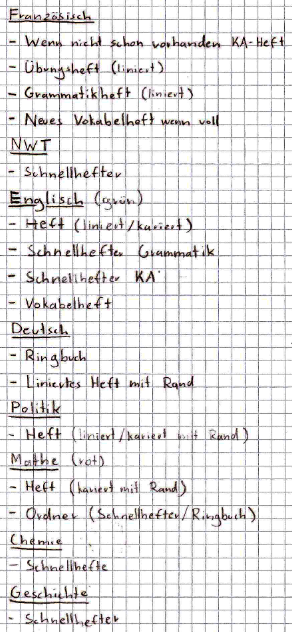 Französisch
- Wenn nicht schon vorhanden KA-Heft
- Übungsheft (liniert)
- Grammatikheft (liniert)
- Neues Vokabelheft wenn voll
NWT
- Schnellhefter
Englisch (grün)
- Heft (liniert/kariert)
- Schnellhefter Grammatik
- Schnellhefter KA
- Vokabelheft
Deutsch
- Ringbuch
- Liniertes Heft mit Rand
Politik
- Heft (liniert/kariert mit Rand)
Mathe (rot)
- Heft (kariert mit Rand)
- Ordner (Schnellhefter/Ringbuch)
Chemie
- Schnellhefte
Geschichte
- Schnellhefter